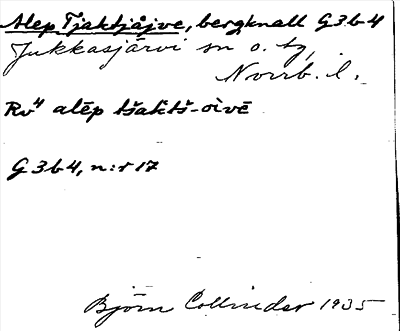 Alep Tjaktjåjve, bergknall G3b4
Jukkasjärvi sn o. tg,
Norrb. l.
Rv4 alēp tšaktš-oìvē
G3b4, n:r 17
Björn Collinder 1935